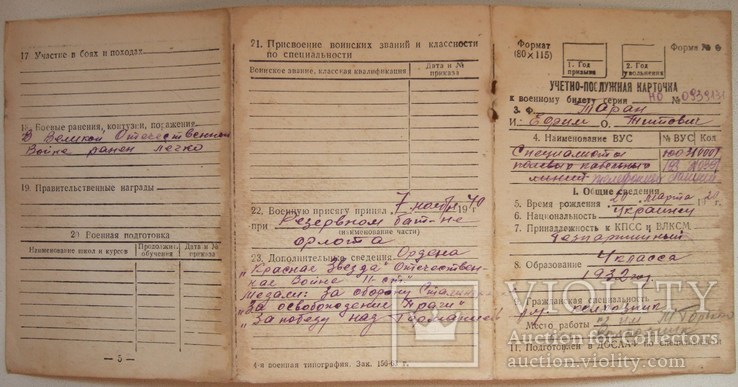 17. Участие в боях и походах
18. Боевые ранения, контузии, поражения
В Великой Отечественной
Войне ранен легко
19. Правительственные награды
20. Военная подготовка
Наименование школ и курсов
Продолж. обучения
Дата и № приказа
— 5 —
21. Присвоение воинских званий и классности
по специальности
Воинское звание, классная квалификация
Дата и № приказа
22. Военную присягу принял 7 ноября 1940
при Резервном бат-не
(наименование части)
флота
23. Дополнительные сведения Ордена
"Красная Звезда" Отечествен-
ная Война II ст.
Медали: За оборону
"За освобождение Праги"
"За победу над Германией"
4-я военная типография. Зак.
Формат
(80×115)
1. Год
призыва
2. Год
увольнения
Форма №
УЧЕТНО-ПОСЛУЖНАЯ КАРТОЧКА
к военному билету серия НО №
3. Ф. Таран
И. Ефрем О. Титович
4. Наименование ВУС
№ ВУС
Код
Специалисты
полевых кабельных
линий
I. Общие сведения
5. Время рождения 20 марта
6. Национальность Украинец
7. Принадлежность к КПСС и ВЛКСМ
беспартийный
8. Образование 4 класса
1932 год
Гражданская специальность
колхозник
Место работы
колхозник
11. Подготовлен в ДОСААФ
VIOLITY
COLLECTORS
Auction.violity.com
auction.violity.com